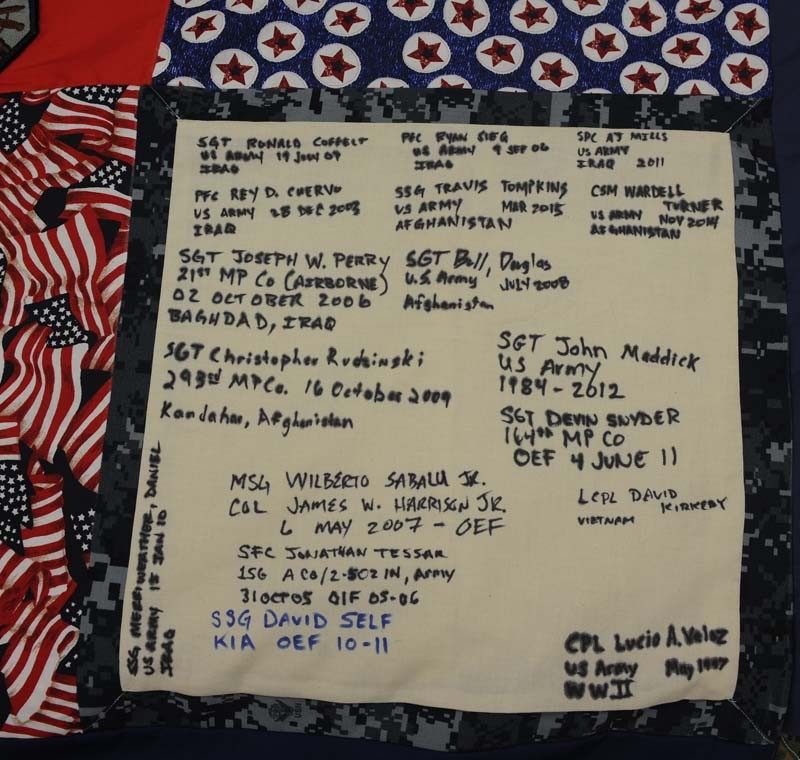 SGT RONALD COFFELT
US ARMY 19 JULY 07
IRAQ
PFC RYAN SIEG
US ARMY 9 SEP 06
IRAQ
SPC AJ MILLS
US ARMY
IRAQ 2011
PFC REY D. CUERVO
US ARMY 28 DEC 2003
IRAQ
SSG TRAVIS TOMPKINS
US ARMY MAR 2015
AFGHANISTAN
CSM WARDELL
TURNER
US ARMY NOV 2014
AFGHANISTAN
SGT JOSEPH W. PERRY
21ST MP Co (AIRBORNE)
02 OCTOBER 2006
BAGHDAD, IRAQ
SGT Bull, Douglas
U.S. Army JULY 2008
Afghanistan
SGT Christopher Rudzinski
293rd MP Co. 16 October 2009
Kandahar, Afghanistan
SGT John Maddick
US Army
1984-2012
SGT DEVIN SNYDER
164th MP CO
OEF 4 JUNE 11
MSG WILBERTO SABALU JR.
COL JAMES W. HARRISON JR.
6 MAY 2007 - OEF
LCPL DAVID
KIRKEBY
VIETNAM
SFC JONATHAN TESSAR
1SG A CO/2-502 IN, Army
31 OCT 05 OIF 05-06
SSG DAVID SELF
KIA OEF 10-11
SSG MERRIWEATHER, DANIEL
US ARMY 13 JAN 10
CPL Lucio A. Velez
US Army May 1997
WWII